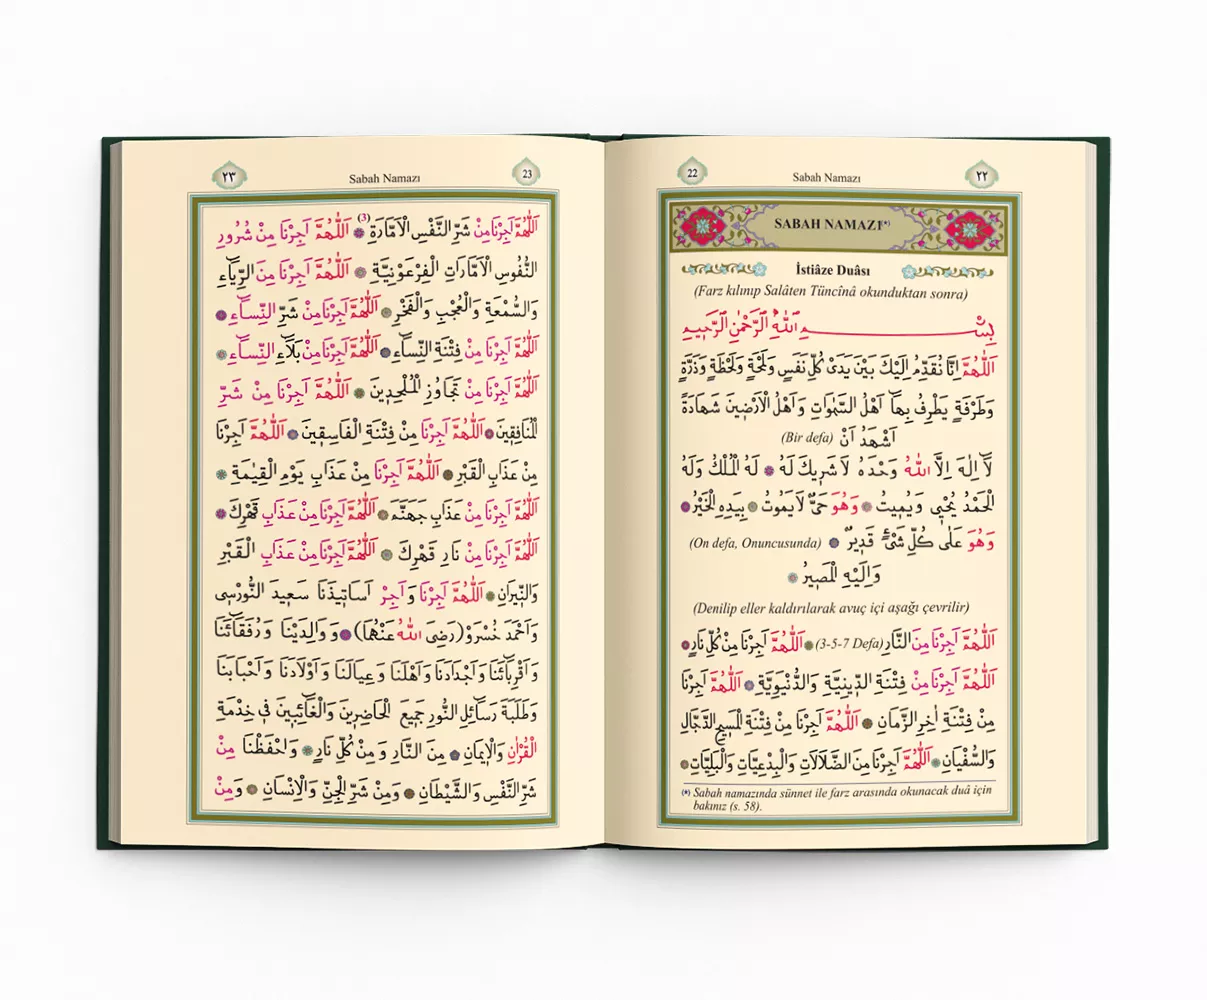 22
Sabah Namazı
٢٢
SABAH NAMAZI(*)
İstiâze Duâsı
(Farz kılınıp Salâten Tüncînâ okunduktan sonra)
بِسْمِ اللّٰهِ الرَّحْمٰنِ الرَّحِيمِ
اَللّٰهُمَّ اِنَّا نُقَدِّمُ اِلَيْكَ بَيْنَ يَدَىْ كُلِّ نَفَسٍ وَلَمْحَةٍ وَلَحْظَةٍ وَذَرَّةٍ
وَطَرْفَةٍ يَطْرِفُ بِهَا اَهْلُ السَّمٰوَاتِ وَاَهْلُ الْاَرْضِينَ شَهَادَةً
اَشْهَدُ اَنْ (Bir defa)
لَا اِلٰهَ اِلَّا اللّٰهُ وَحْدَهُ لَا شَرِيكَ لَهُ ۞ لَهُ الْمُلْكُ وَلَهُ
الْحَمْدُ يُحْيِى وَيُمِيتُ ۞ وَهُوَ حَىٌّ لَا يَمُوتُ ۞ بِيَدِهِ الْخَيْرُ ۞
وَهُوَ عَلٰى كُلِّ شَىْءٍ قَدِيرٌ ۞ (On defa, Onuncusunda)
وَاِلَيْهِ الْمَصِيرُ ۞
(Denilip eller kaldırılarak avuç içi aşağı çevrilir)
اَللّٰهُمَّ اَجِرْنَا مِنَ النَّارِ (3-5-7 Defa) ۞ اَللّٰهُمَّ اَجِرْنَا مِنْ كُلِّ نَارٍ ۞
اَللّٰهُمَّ اَجِرْنَا مِنْ فِتْنَةِ الدِّينِيَّةِ وَالدُّنْيَوِيَّةِ ۞ اَللّٰهُمَّ اَجِرْنَا
مِنْ فِتْنَةِ اٰخِرِ الزَّمَانِ ۞ اَللّٰهُمَّ اَجِرْنَا مِنْ فِتْنَةِ الْمَسِيحِ الدَّجَّالِ
وَالسُّفْيَانِ ۞ اَللّٰهُمَّ اَجِرْنَا مِنَ الضَّلَالَاتِ وَالْبِدْعِيَّاتِ وَالْبَلِيَّاتِ ۞
(*) Sabah namazında sünnet ile farz arasında okunacak duâ için
bakınız (s. 58).
٢٣
Sabah Namazı
23
اَللّٰهُمَّ اَجِرْنَا مِنْ شَرِّ النَّفْسِ الْاَمَّارَةِ (3) ۞ اَللّٰهُمَّ اَجِرْنَا مِنْ شُرُورِ
النُّفُوسِ الْاَمَّارَاتِ الْفِرْعَوْنِيَّةِ ۞ اَللّٰهُمَّ اَجِرْنَا مِنَ الرِّيَاءِ
وَالسُّمْعَةِ وَالْعُجْبِ وَالْفَخْرِ ۞ اَللّٰهُمَّ اَجِرْنَا مِنْ شَرِّ النِّسَاءِ ۞
اَللّٰهُمَّ اَجِرْنَا مِنْ فِتْنَةِ النِّسَاءِ ۞ اَللّٰهُمَّ اَجِرْنَا مِنْ بَلَاءِ النِّسَاءِ ۞
اَللّٰهُمَّ اَجِرْنَا مِنْ تَجَاوُزِ الْمُلْحِدِينَ ۞ اَللّٰهُمَّ اَجِرْنَا مِنْ شَرِّ
الْمُنَافِقِينَ ۞ اَللّٰهُمَّ اَجِرْنَا مِنْ فِتْنَةِ الْفَاسِقِينَ ۞ اَللّٰهُمَّ اَجِرْنَا
مِنْ عَذَابِ الْقَبْرِ ۞ اَللّٰهُمَّ اَجِرْنَا مِنْ عَذَابِ يَوْمِ الْقِيٰمَةِ ۞
اَللّٰهُمَّ اَجِرْنَا مِنْ عَذَابِ جَهَنَّمَ ۞ اَللّٰهُمَّ اَجِرْنَا مِنْ عَذَابِ قَهْرِكَ ۞
اَللّٰهُمَّ اَجِرْنَا مِنْ نَارِ قَهْرِكَ ۞ اَللّٰهُمَّ اَجِرْنَا مِنْ عَذَابِ الْقَبْرِ
وَالنِّيرَانِ ۞ اَللّٰهُمَّ اَجِرْنَا وَاَجِرْ اَسَاتِيذَنَا سَعِيدَ النُّورْسِى
وَاَحْمَدَ خُسْرَوْ (رَضِىَ اللّٰهُ عَنْهُمَا) ۞ وَوَالِدَيْنَا وَرُفَقَائَنَا
وَاَقْرِبَائَنَا وَاَجْدَادَنَا وَاَهْلَنَا وَعِيَالَنَا وَاَوْلَادَنَا وَاَحْبَابَنَا
وَطَلَبَةَ رَسَائِلِ النُّورِ جَمِيعَ الْحَاضِرِينَ وَالْغَائِبِينَ فِى خِدْمَةِ
الْقُرْاٰنِ وَالْاِيمَانِ ۞ مِنَ النَّارِ وَمِنْ كُلِّ نَارٍ ۞ وَاحْفَظْنَا مِنْ
شَرِّ النَّفْسِ وَالشَّيْطَانِ ۞ وَمِنْ شَرِّ الْجِنِّ وَالْاِنْسَانِ ۞ وَمِنْ